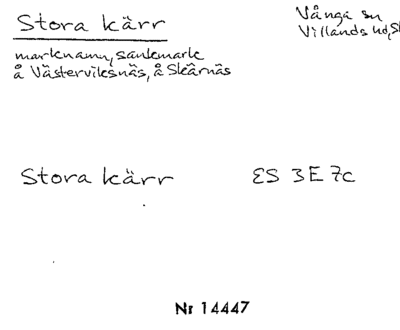 Stora kärr
Vånga sn
Villands hd, Sk
marknamn, sankmark
å Västerviksnäs, å Skärnäs
Stora kärr ES 3E 7c
Nr 14447